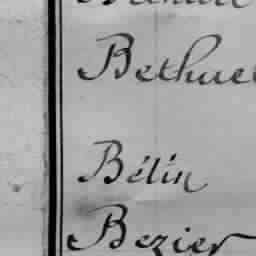 Bethue
Bélin
Bezier